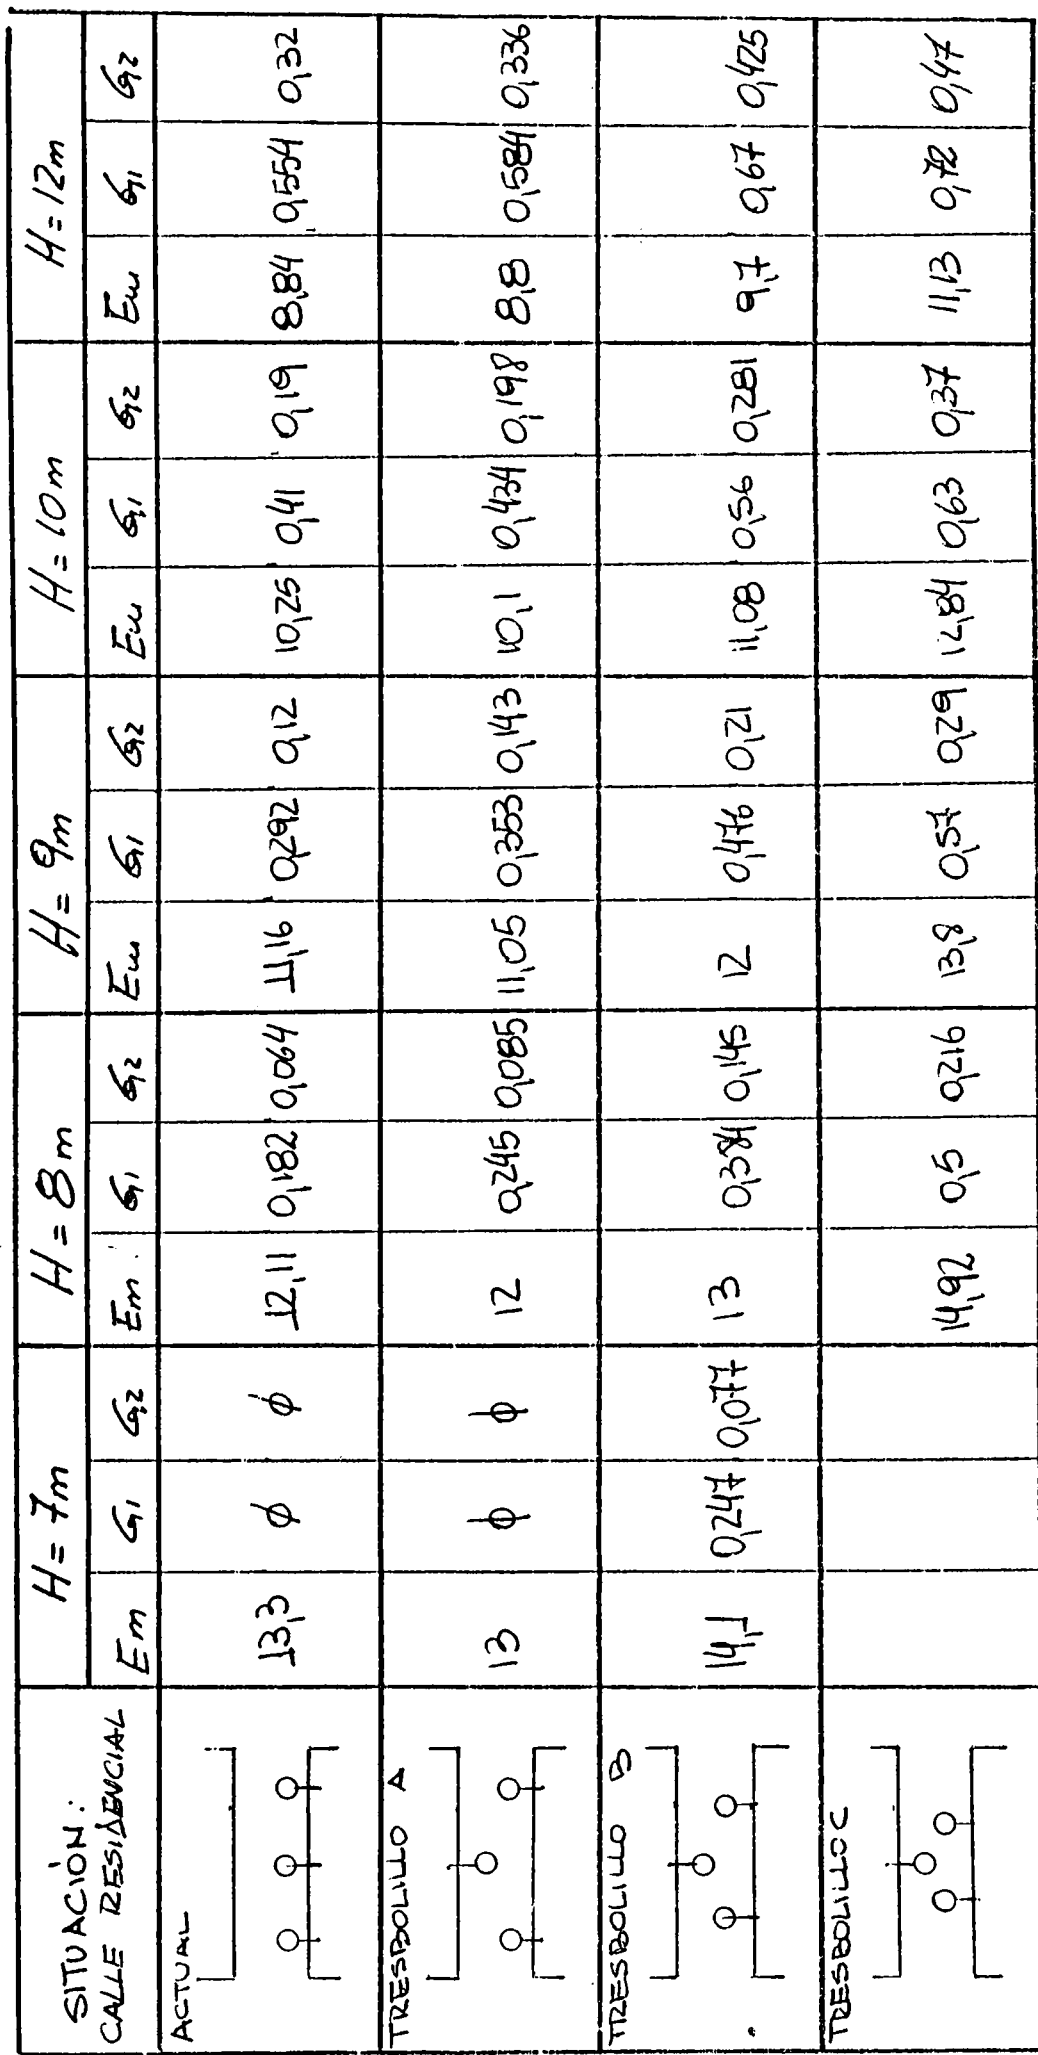 SITUACIÒN: CALLE RESIDENCIAL H = 7m H = 8m H = 9m H = 10m H = 12m
Em G1 G2 Em G1 G2 Em G1 G2 Em G1 G2 Em G1 G2
ACTUAL 13,3 ϕ ϕ 12,11 0,182 0,064 11,16 0,292 0,12 10,25 0,41 0,19 8,84 0,554 0,32
TRESBOLILLO A 13 ϕ ϕ 12 0,245 0,085 11,05 0,353 0,143 10,1 0,434 0,198 8,8 0,584 0,336
TRESBOLILLO B 14,1 0,247 0,077 13 0,384 0,145 12 0,476 0,21 11,08 0,56 0,281 9,7 0,67 0,425
TRESBOLILLO C 14,92 0,5 0,216 13,8 0,57 0,29 12,84 0,63 0,37 11,13 0,72 0,47